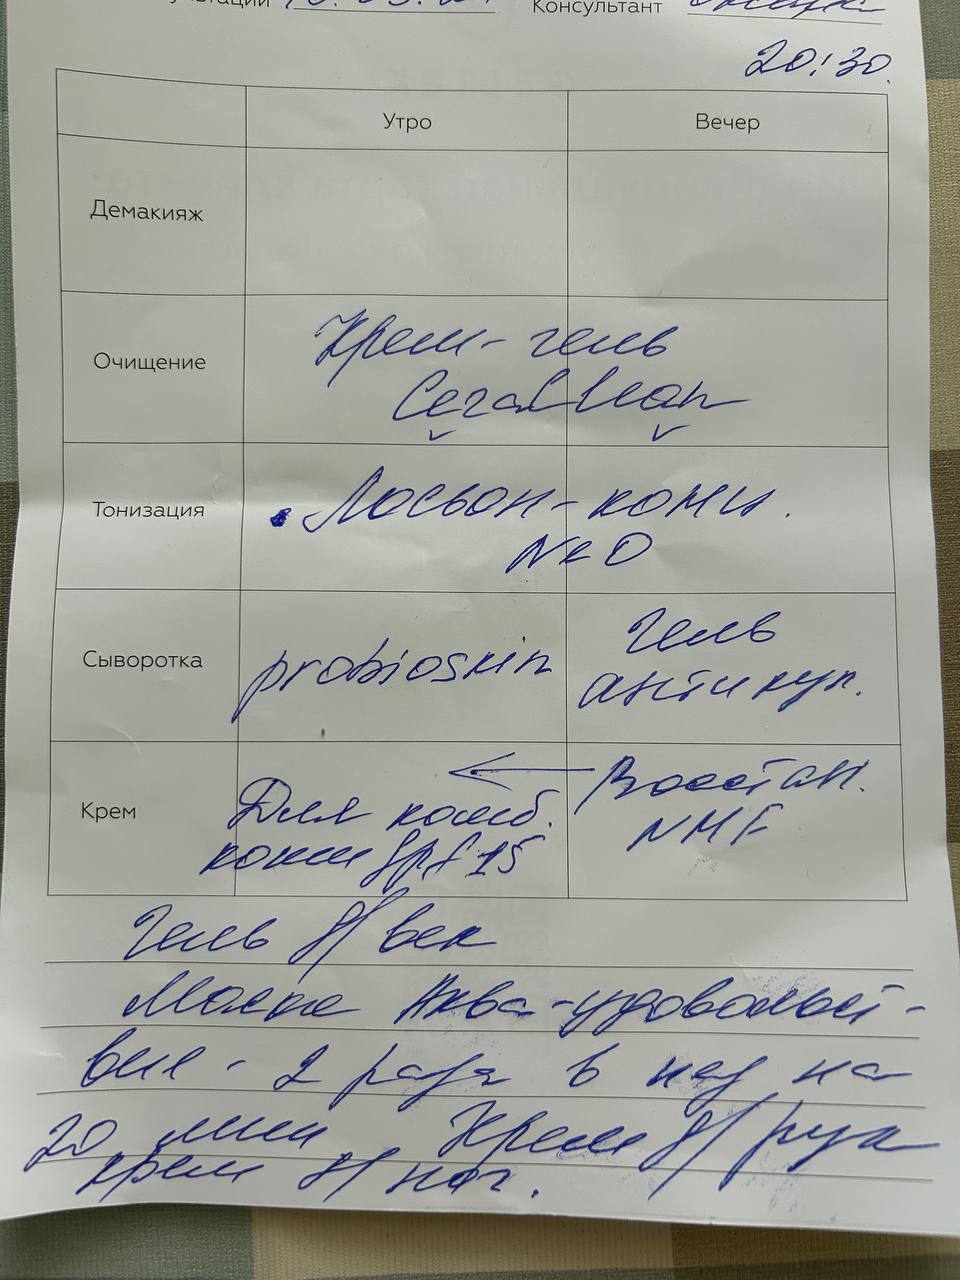 Консультант
20:30.
Утро Вечер
Демакияж
Очищение
Крем-гель
CeraClean
Тонизация
Лосьон-комп.
№0
Сыворотка
probioskin
Гель
антикуп.
Крем
Для комб.
кожи Spf 15
Восстан.
NMF
Гель д/век
Маска Аква-удовольст-
вие - 2 раза в нед на
20 мин Крем д/рук
крем д/ног.